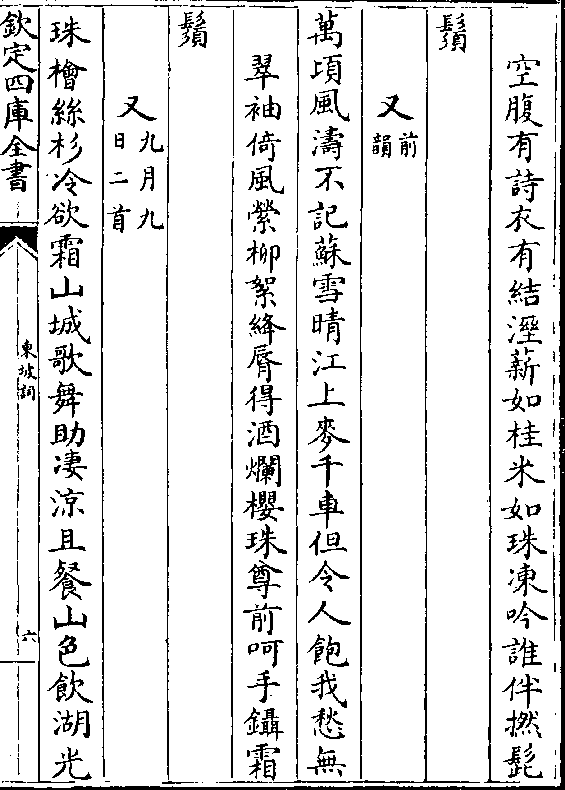 空腹有詩衣有結溼薪如桂米如珠凍吟誰伴撚髭
鬚
又前韻
萬頃風濤不記蘇雪晴江上麥千車但令人飽我愁無
翠袖倚風縈柳絮絳脣得酒爛櫻珠尊前呵手鑷霜
鬚
又九月九日二首
珠檜絲杉冷欲霜山城歌舞助凄涼且餐山色飲湖光
欽定四庫全書
東坡詞
六